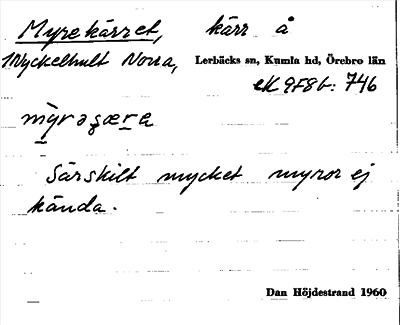 Myrekärret, kärr å
Myckelhult Norra, Lerbäcks sn, Kumla hd, Örebro län
ek 9F8b: 746
Särskilt mycket myror ej
kända.
Dan Höjdestrand 1960